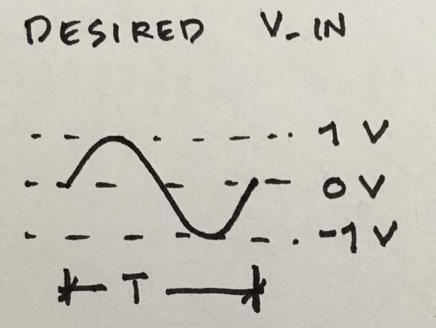 DESIRED V_IN
1 V
0 V
-1 V
T